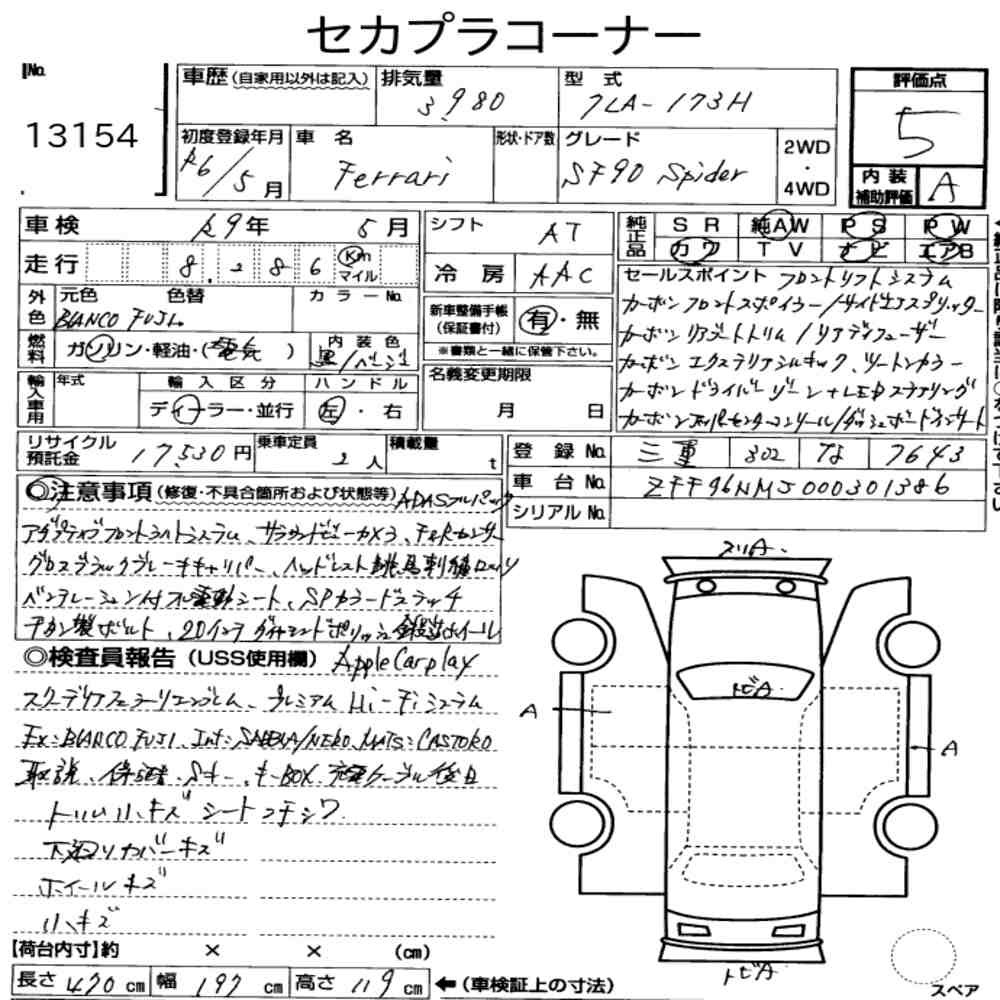 セカプラコーナー
No. 13154
車歴 (自家用以外は記入)
排気量 3,980
型式 7LA-173H
評価点 5
内装補助評価 A
初度登録年月 R6/5月
車名 Ferrari
形状・ドア数
グレード SF90 Spider
2WD・4WD
車検 R9年 5月
走行 8,286 Km マイル
シフト AT
冷房 AAC
純正品 SR 純AW PS PW
カワ TV ナビ エアB
外色 元色 BIANCO FUJI 色替 カラーNo.
燃料 ガソリン・軽油・(電気) 内装色 黒/ベージュ
新車整備手帳 (保証書付) 有・無
※書類と一緒に保管下さい。
輸入車用 年式 輸入区分 ディーラー・並行 ハンドル 左・右
名義変更期限 月 日
セールスポイント フロントリフトシステム
カーボンフロントスポイラー/サイドエアスプリッター
カーボンリアブートトリム/リアディフューザー
カーボンエクステリアシルキック、ツートンカラー
カーボンドライバーゾーン+LEDステアリング
カーボンアッパーセンターコンソール/ダッシュボードインサート
リサイクル預託金 17,530円
乗車定員 2人
積載量 t
登録No. 三重 302 な 7643
車台No. ZFF96NMJ000301386
シリアルNo.
◎注意事項 (修復・不具合箇所および状態等) ADASフルパック
アダプティブフロントライトシステム、サラウンドビューカメラ、F&Rセンサー
グロスブラックブレーキキャリパー、ヘッドレスト跳馬刺繍ロッソ
ベンチレーション付フル電動シート、SPカラードステッチ
チタン製ボルト、20インチダイヤモンドポリッシュ鍛造ホイール
◎検査員報告 (USS使用欄) Apple Carplay
スクーデリアフェラーリエンブレム、プレミアムHi-Fiシステム
Ex:BIANCO FUJI、Int:SABBIA/NERO、MATS:CASTORO
取説、保証書、Sキー、キーBOX、充電ケーブル後日
トリム小キズ シートコチシワ
下廻りカバーキズ
ホイールキズ
小キズ
スリA
トビA
A
A
トビA
スペア
【荷台内寸】約 × × (cm)
長さ 470cm 幅 197cm 高さ 119cm ←(車検証上の寸法)